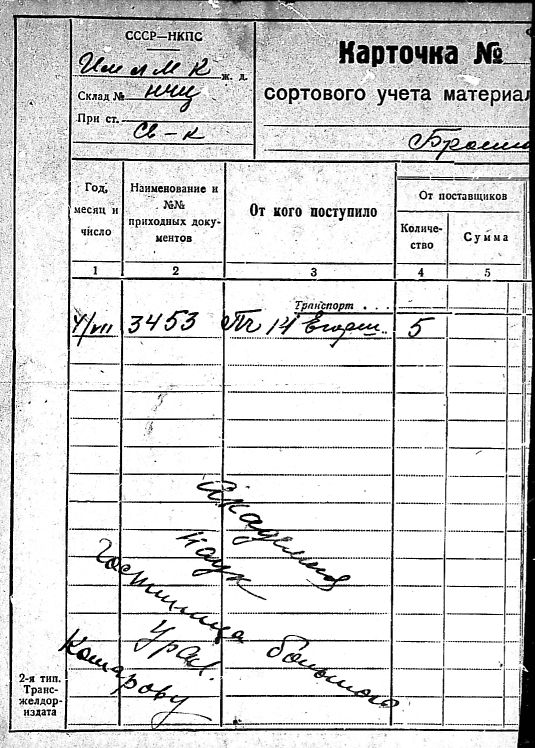 СССР—НКПС
ж. д.
Склад № НЧЦ
При ст. Св-к
Карточка №
сортового учета материал
Год, месяц и число
Наименование и №№ приходных документов
От кого поступило
От поставщиков
Количество
Сумма
1 2 3 4 5
Транспорт . . .
4/VII 3453 Пч 14 Егорш. 5
Академия
наук
Гостиница Большого
Урал.
Комарову
2-я тип.
Транс-
желдор-
издата